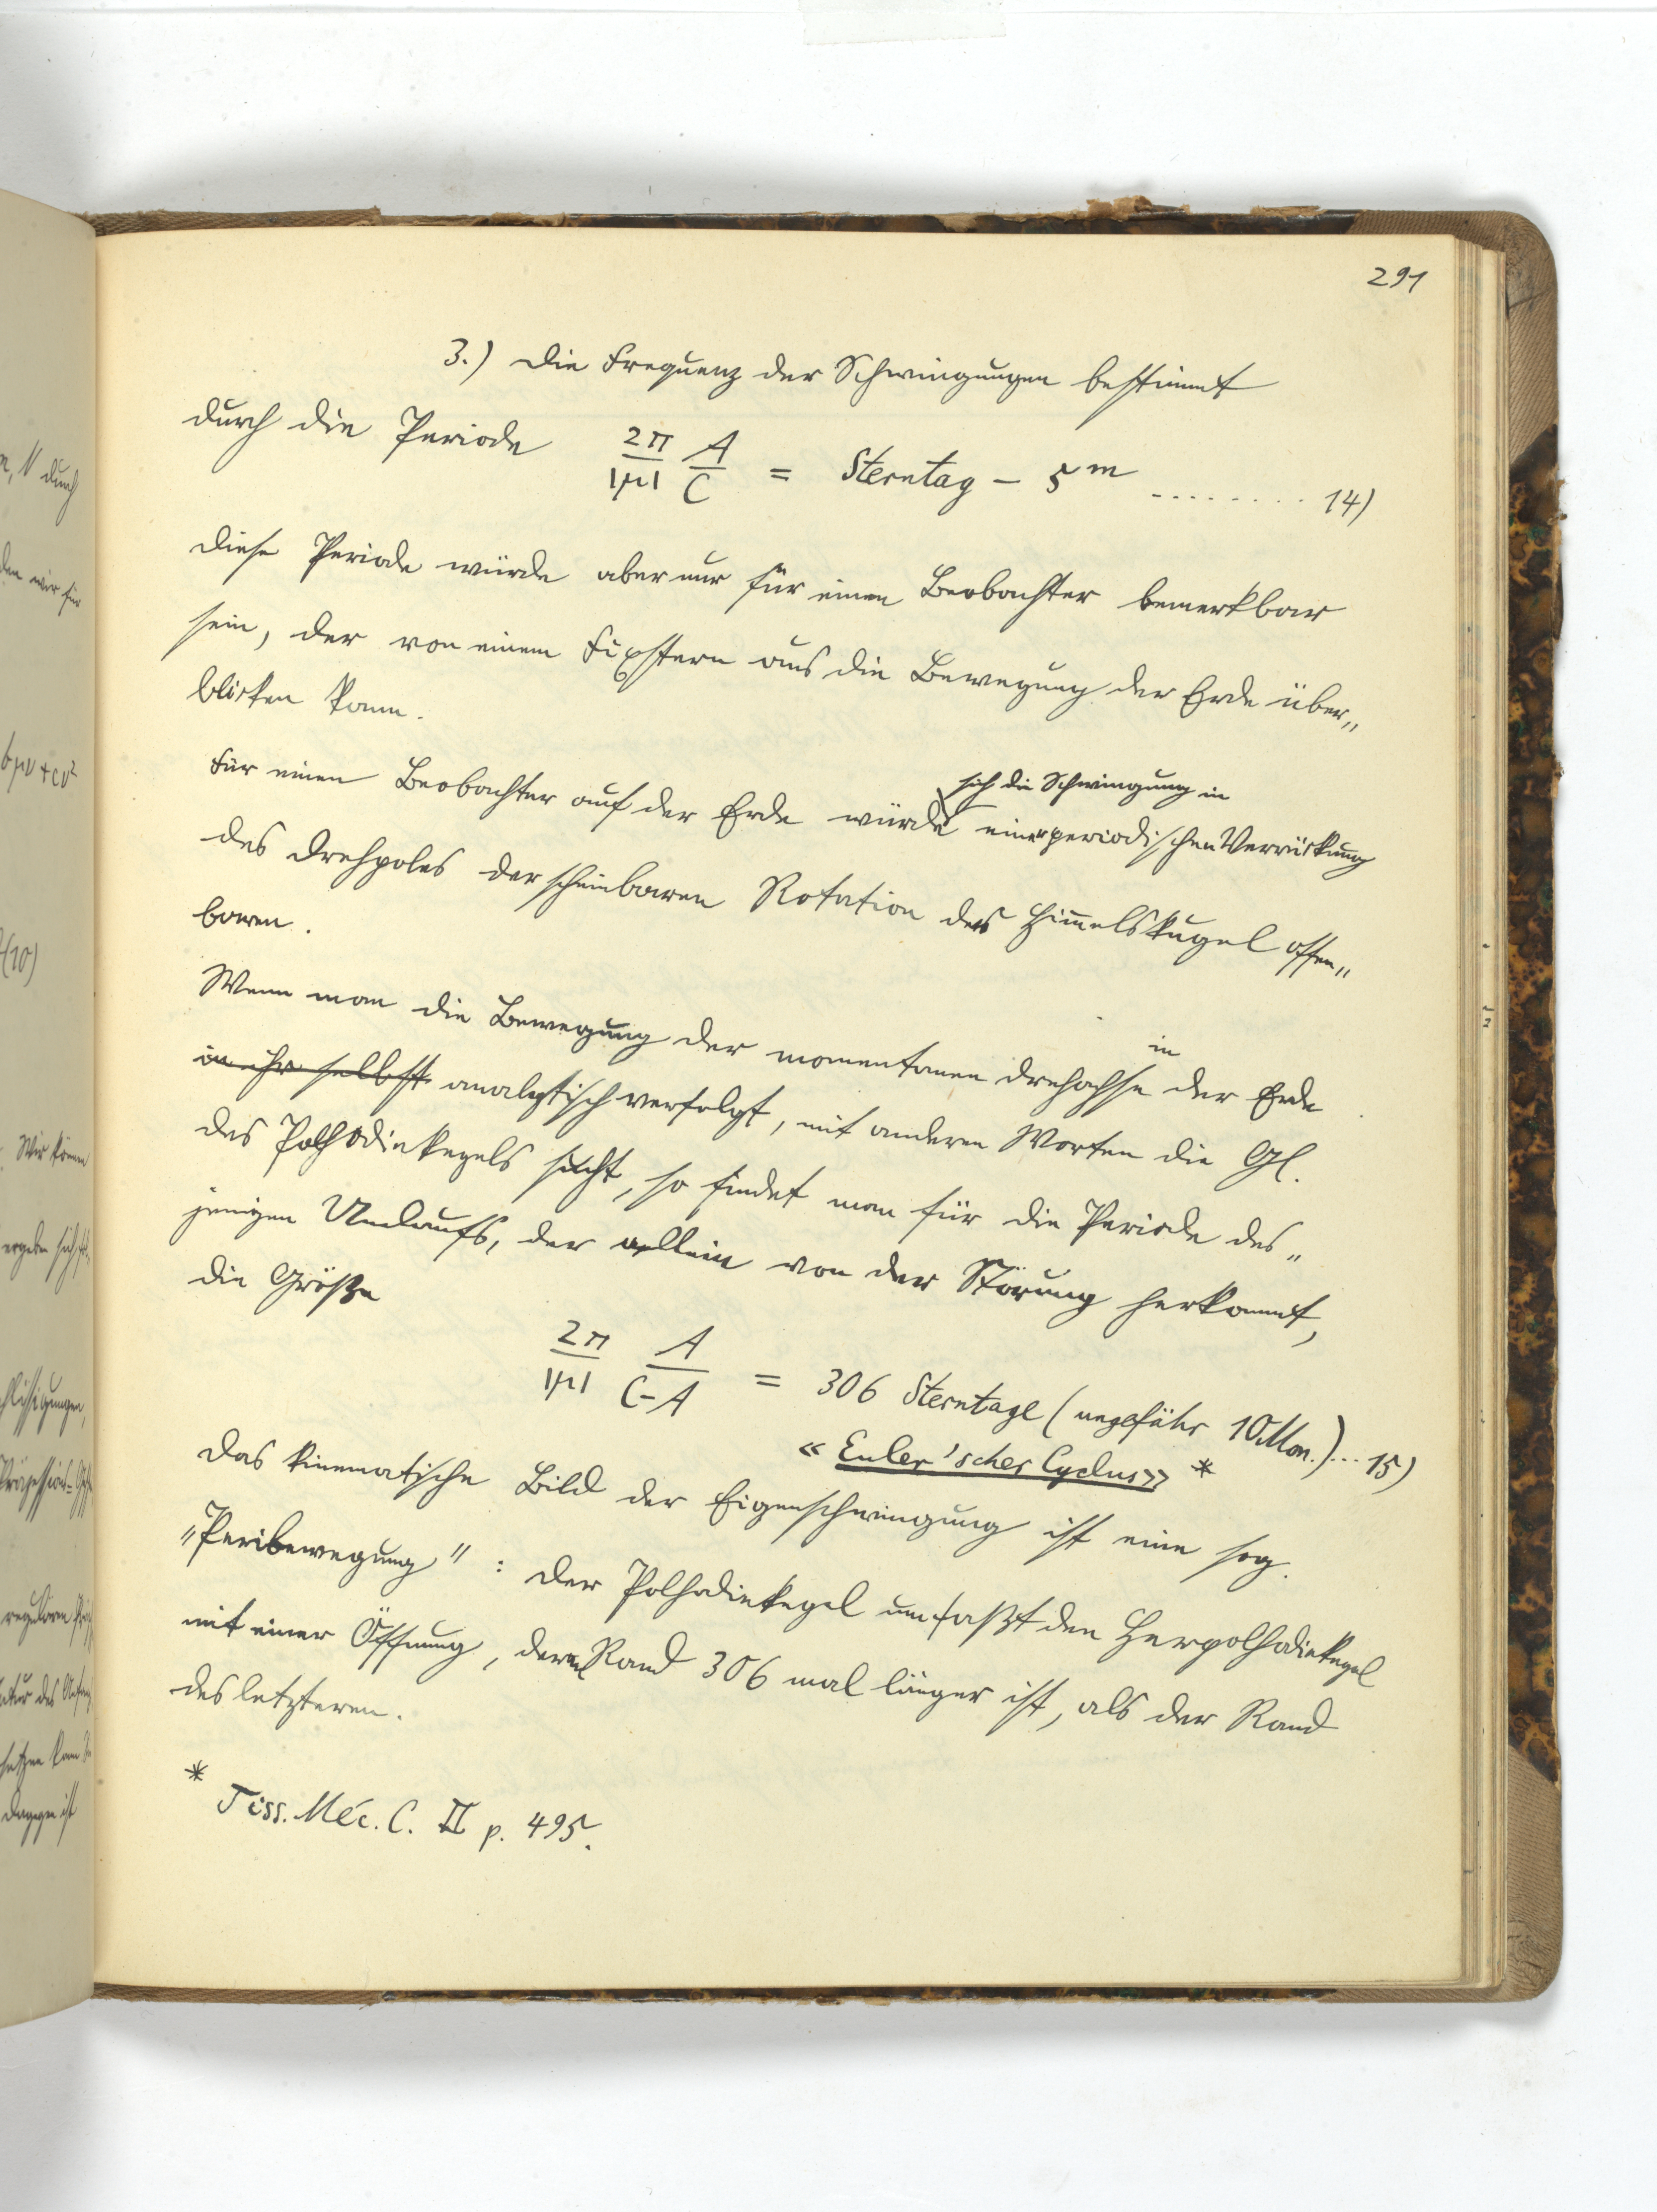 291
3.) Die Frequenz der Schwingungen bestimmt
durch die Periode 2π/|μ| A/C = Sterntag – 5^m ......... 14)
Diese Periode würde aber nur für einen Beobachter bemerkbar
sein, der von einem Fixstern aus die Bewegung der Erde über„
blicken kann.
Für einen Beobachter auf der Erde würde sich die Schwingung in einer periodischen Verrückung
des Drehpoles der scheinbaren Rotation der Himmelskugel offen„
baren.
Wenn man die Bewegung der momentanen Drehachse in der Erde
in ihr selbst analytisch verfolgt, mit anderen Worten die Gl.
des Polhodiekegels sucht, so findet man für die Periode des„
jenigen Umlaufs, der allein von der Störung herkommt,
die Größe
2π/|μ| A/C–A = 306 Sterntage (ungefähr 10 Mon.)... 15)
« Euler'scher Cyclus» *
Das kinematische Bild der Eigenschwingung ist eine sog.
"Peribewegung" : Der Polhodiekegel umfaßt den Herpolhodiekegel
mit einer Öffnung, deren Rand 306 mal länger ist, als der Rand
des letzteren.
* Tiss. Méc. C. II p. 495.